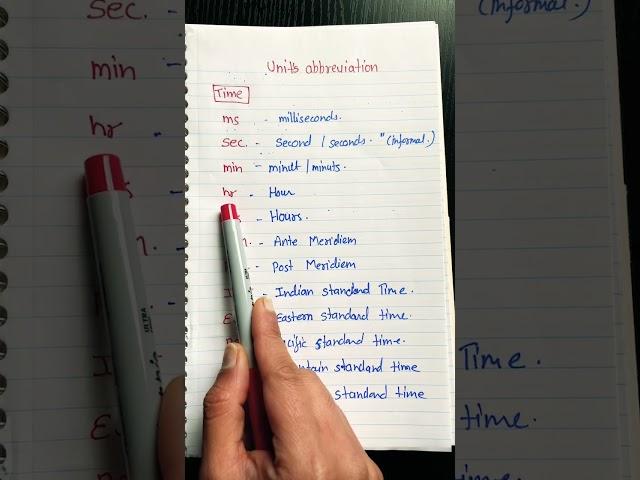 Units abbreviation
Time
ms - milliseconds.
Sec. - Second / seconds. "(informal.)
min - minuet / minuts.
hr - Hour
- Hours.
- Ante Meridiem
- Post Meridiem
- Indian standard Time.
Eastern standard time.
standard time.
standard time
standard time